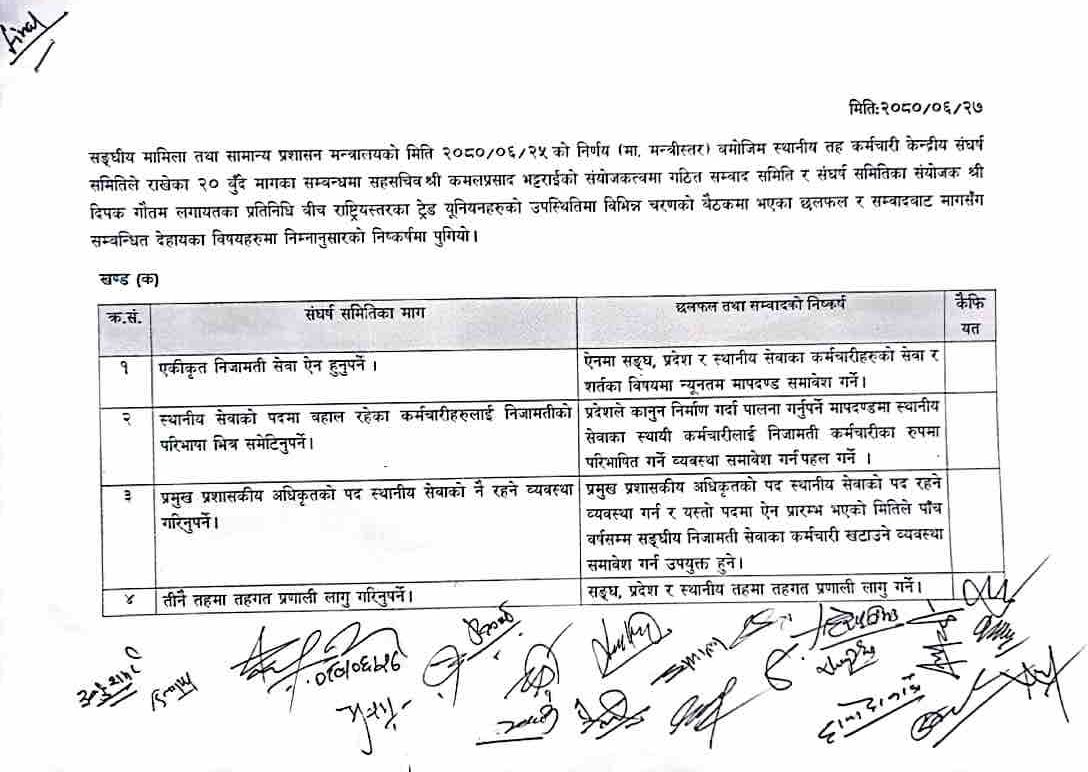 final
मिति:२०८०/०६/२७
सङ्घीय मामिला तथा सामान्य प्रशासन मन्त्रालयको मिति २०८०/०६/२५ को निर्णय (मा. मन्त्रीस्तर) बमोजिम स्थानीय तह कर्मचारी केन्द्रीय संघर्ष
समितिले राखेका २० बुँदे मागका सम्बन्धमा सहसचिव श्री कमलप्रसाद भट्टराईको संयोजकत्वमा गठित सम्वाद समिति र संघर्ष समितिका संयोजक श्री
दिपक गौतम लगायतका प्रतिनिधि बीच राष्ट्रियस्तरका ट्रेड यूनियनहरुको उपस्थितिमा विभिन्न चरणको बैठकमा भएका छलफल र सम्वादबाट मागसँग
सम्बन्धित देहायका विषयहरुमा निम्नानुसारको निष्कर्षमा पुगियो।
खण्ड (क)
क्र.सं. संघर्ष समितिका माग छलफल तथा सम्वादको निष्कर्ष कैफि
यत
१ एकीकृत निजामती सेवा ऐन हुनुपर्ने । ऐनमा सङ्घ, प्रदेश र स्थानीय सेवाका कर्मचारीहरुको सेवा र
शर्तका विषयमा न्यूनतम मापदण्ड समावेश गर्ने।
२ स्थानीय सेवाको पदमा बहाल रहेका कर्मचारीहरुलाई निजामतीको प्रदेशले कानुन निर्माण गर्दा पालना गर्नुपर्ने मापदण्डमा स्थानीय
परिभाषा भित्र समेटिनुपर्ने। सेवाका स्थायी कर्मचारीलाई निजामती कर्मचारीका रुपमा
परिभाषित गर्ने व्यवस्था समावेश गर्न पहल गर्ने ।
३ प्रमुख प्रशासकीय अधिकृतको पद स्थानीय सेवाको नै रहने व्यवस्था प्रमुख प्रशासकीय अधिकृतको पद स्थानीय सेवाको पद रहने
गरिनुपर्ने। व्यवस्था गर्न र यस्तो पदमा ऐन प्रारम्भ भएको मितिले पाँच
वर्षसम्म सङ्घीय निजामती सेवाका कर्मचारी खटाउने व्यवस्था
समावेश गर्न उपयुक्त हुने।
४ तीनै तहमा तहगत प्रणाली लागु गरिनुपर्ने। सङ्घ, प्रदेश र स्थानीय तहमा तहगत प्रणाली लागु गर्ने।